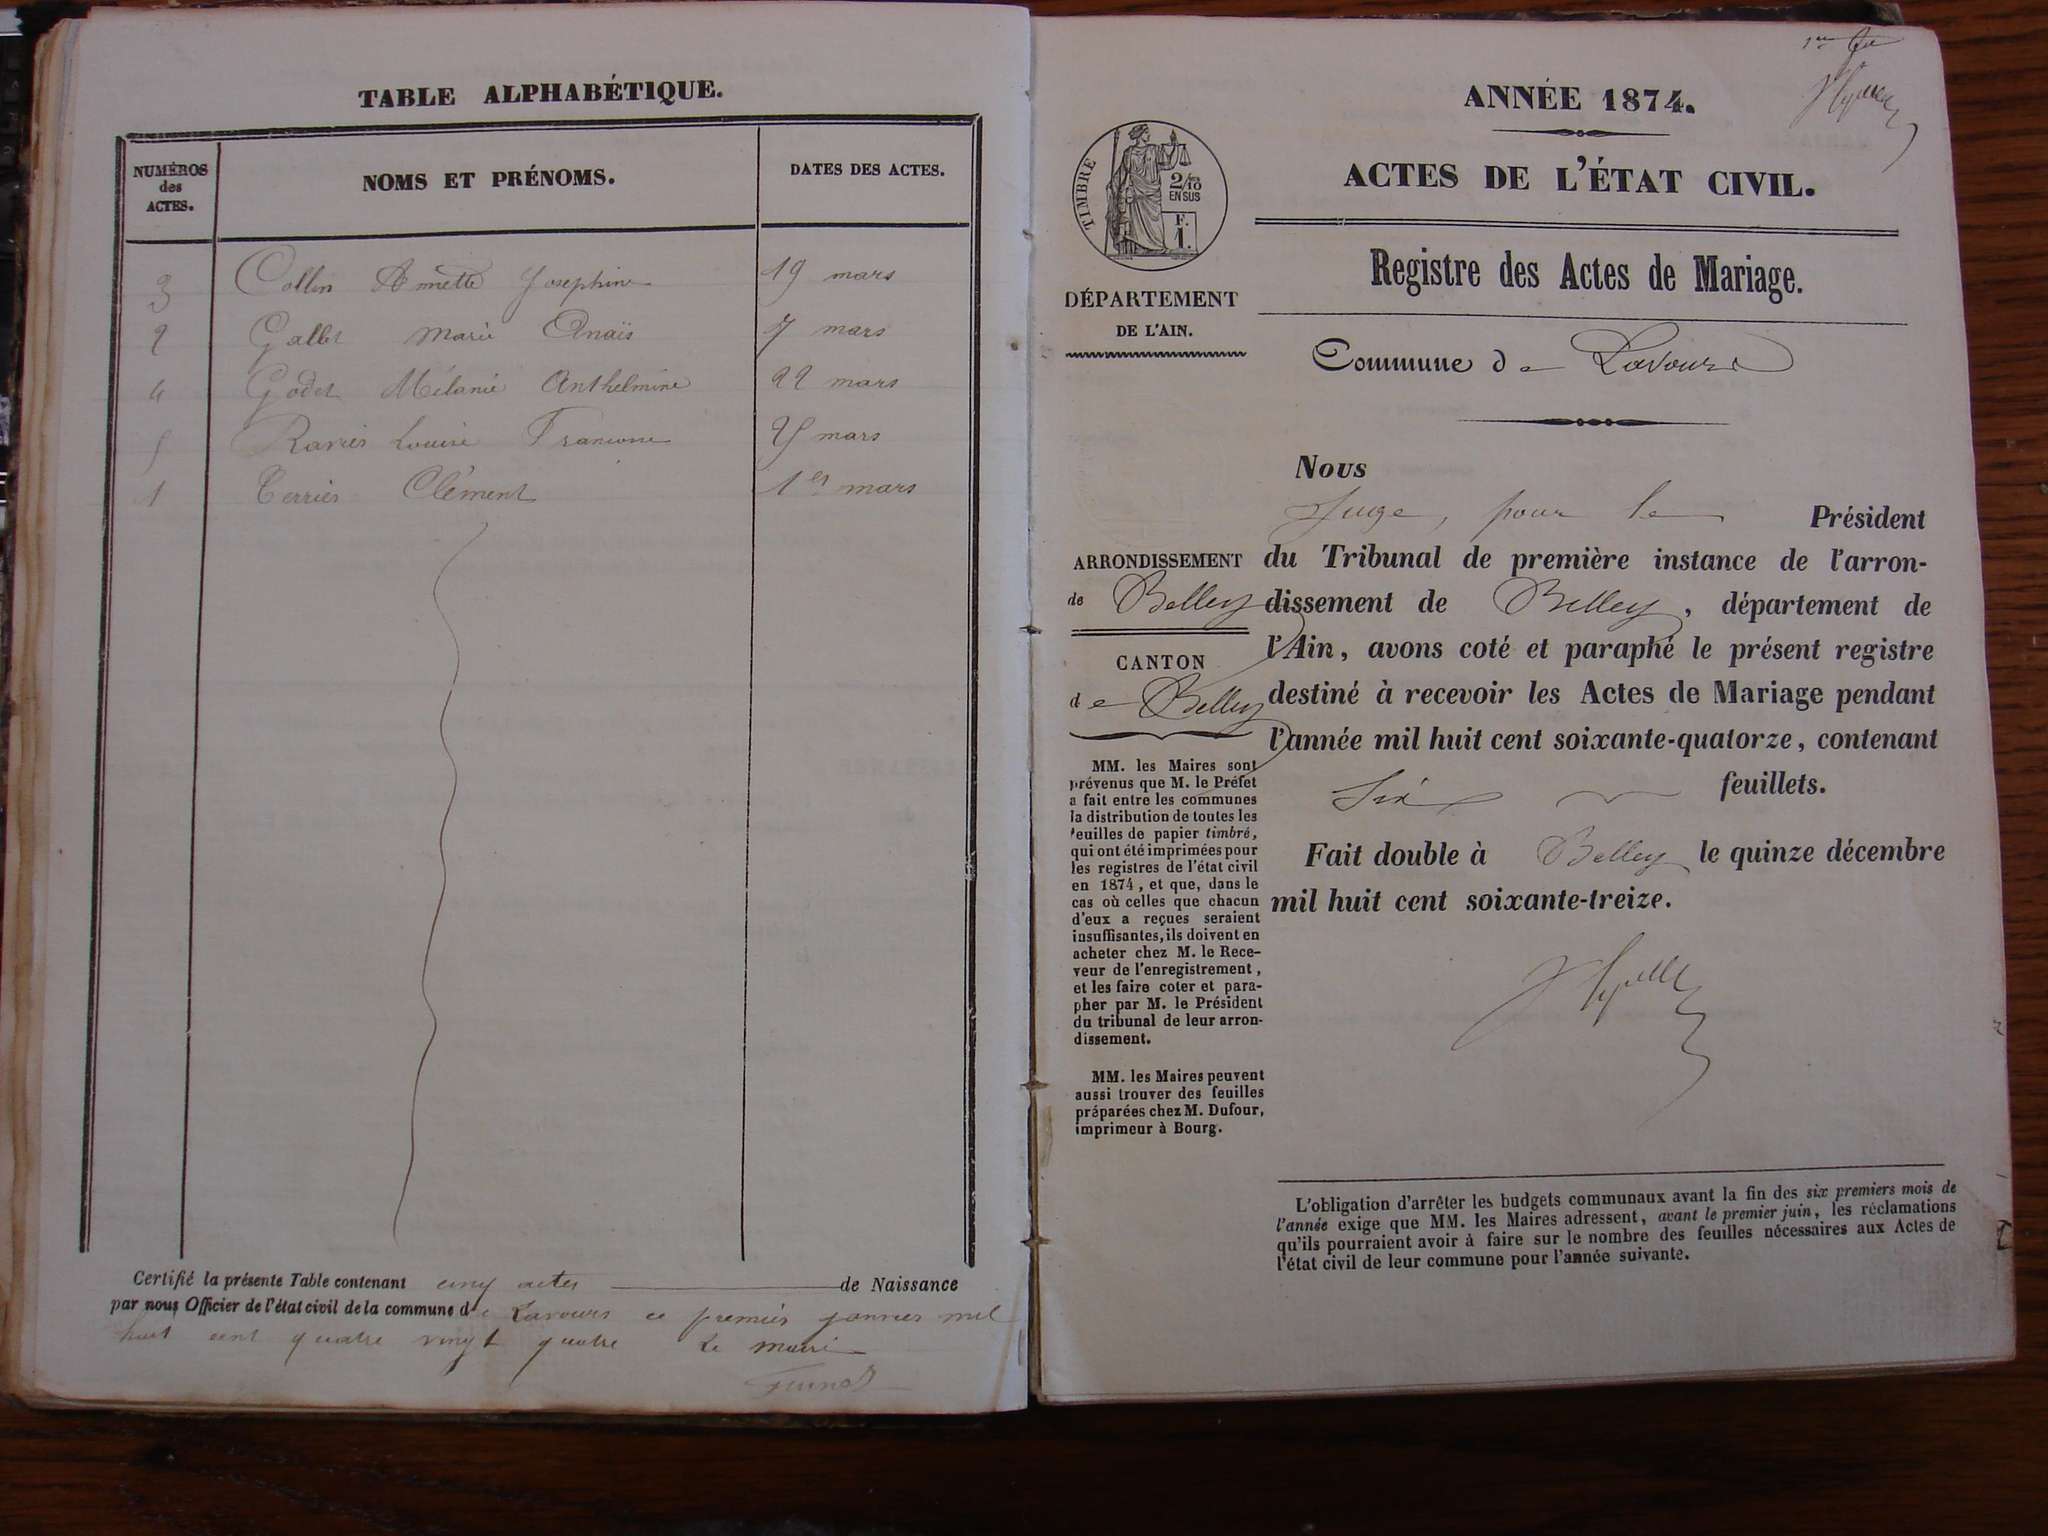 TABLE ALPHABÉTIQUE.
NUMÉROS
des
ACTES.
NOMS ET PRÉNOMS.
DATES DES ACTES.
3 Collin Annette Josephine 19 mars
2 Gallet Marie Anaïs 7 mars
4 Godet Mélanie Anthelmine 22 mars
5 Louise 25 mars
1 Terrier Clément 1er mars
Certifié la présente Table contenant cinq actes de Naissance
par nous Officier de l'état civil de la commune de Lavours ce premier janvier mil
huit cent quatre vingt quatre Le maire
ANNÉE 1874.
ACTES DE L'ÉTAT CIVIL.
TIMBRE
2/10
EN SUS
F.
1.
Registre des Actes de Mariage.
DÉPARTEMENT
DE L'AIN.
Commune de Lavours
Nous
Juge, pour le Président
du Tribunal de première instance de l'arron-
dissement de Belley, département de
l'Ain, avons coté et paraphé le présent registre
destiné à recevoir les Actes de Mariage pendant
l'année mil huit cent soixante-quatorze, contenant
Six feuillets.
Fait double à Belley le quinze décembre
mil huit cent soixante-treize.
ARRONDISSEMENT
de Belley
CANTON
de Belley
MM. les Maires sont
prévenus que M. le Préfet
a fait entre les communes
la distribution de toutes les
feuilles de papier timbré,
qui ont été imprimées pour
les registres de l'état civil
en 1874, et que, dans le
cas où celles que chacun
d'eux a reçues seraient
insuffisantes, ils doivent en
acheter chez M. le Rece-
veur de l'enregistrement,
et les faire coter et para-
pher par M. le Président
du tribunal de leur arron-
dissement.
MM. les Maires peuvent
aussi trouver des feuilles
préparées chez M. Dufour,
imprimeur à Bourg.
L'obligation d'arrêter les budgets communaux avant la fin des six premiers mois de
l'année exige que MM. les Maires adressent, avant le premier juin, les réclamations
qu'ils pourraient avoir à faire sur le nombre des feuilles nécessaires aux Actes de
l'état civil de leur commune pour l'année suivante.